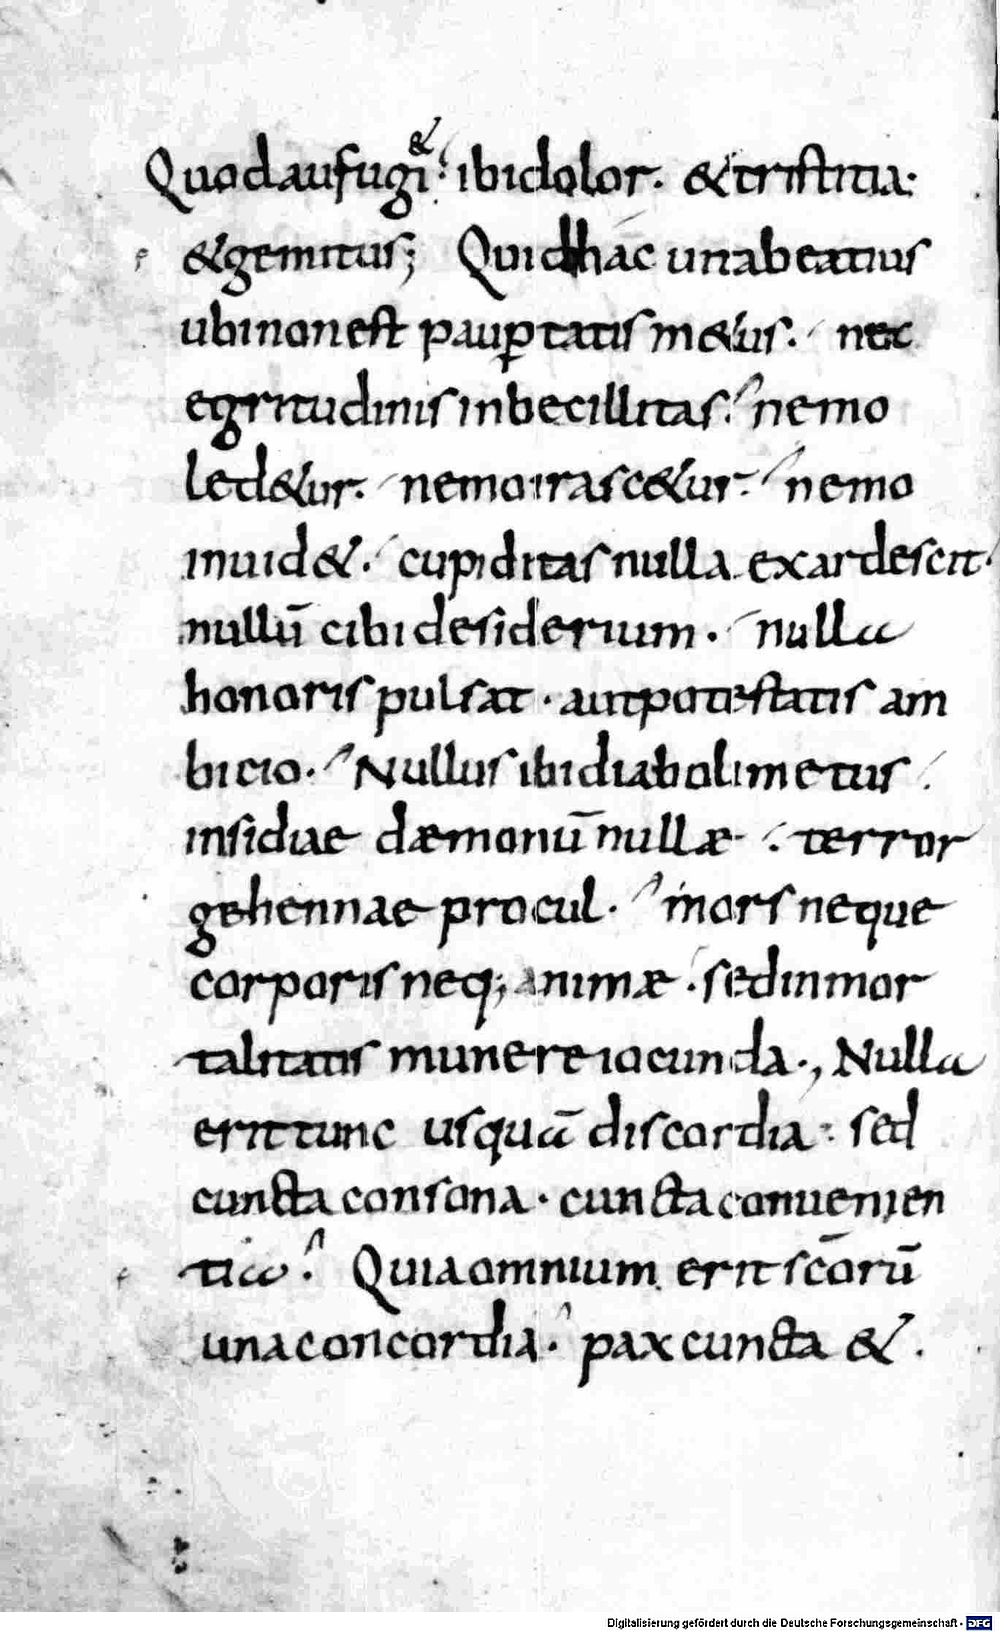 Quod aufugi&: ibi dolor. & tristitia:
& gemitus; Quid hác uita beatius
ubi non est paup̱tatis m&us. nec
egritudinis inbecillitas. nemo
led&ur. nemo irasc&ur. nemo
inuid&. cupiditas nulla exardescit.
nullū cibi desiderium. nulla
honoris pulsat. aut potestatis am
bicio. Nullus ibi diaboli metus.
insidiae dæmonū nullæ. terror
gehennae procul. mors neque
corporis neq; animæ. sed inmor
talitatis munere iocunda., Nulla
erit tunc usquā discordia. sed
cuncta consona. cuncta conuenien
tia. Quia omnium erit sc̄orū
una concordia. pax cuncta &.
Digitalisierung gefördert durch die Deutsche Forschungsgemeinschaft - DFG